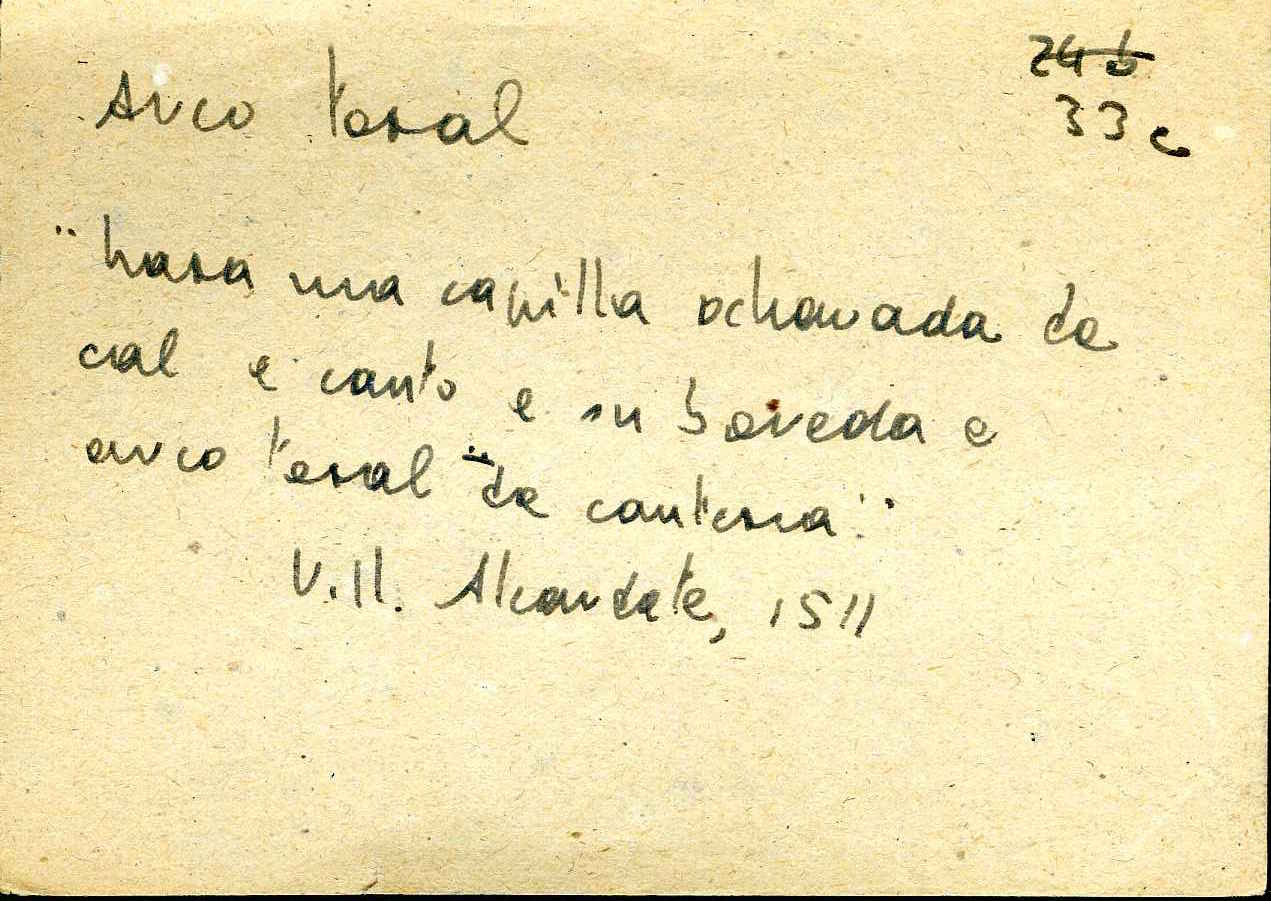 24 b
33 c
Arco toral
"hara una capilla ochavada de
cal e canto e su boveda e
arco toral "de canteria"
V.II. Alcaudete, 1511